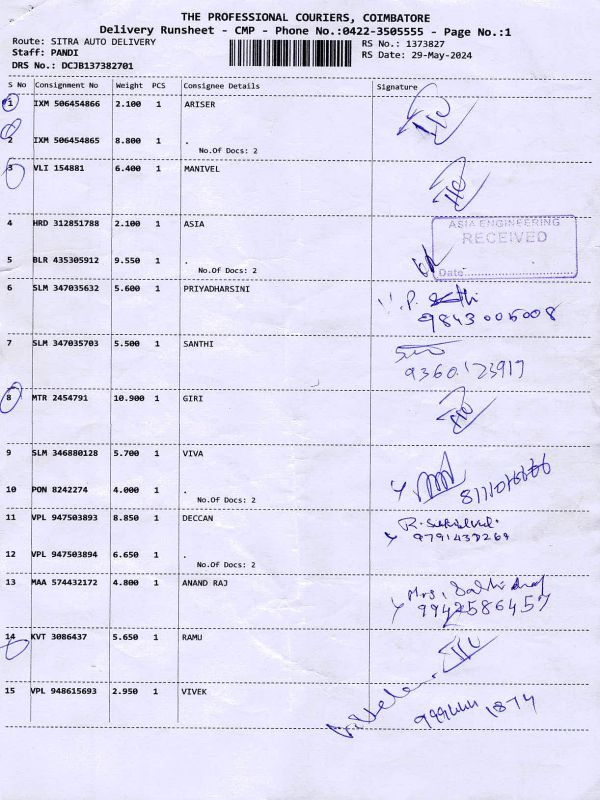 THE PROFESSIONAL COURIERS, COIMBATORE
Delivery Runsheet - CMP - Phone No.:0422-3505555 - Page No.:1
Route: SITRA AUTO DELIVERY
RS No.: 1373827
Staff: PANDI
RS Date: 29-May-2024
DRS No.: DCJB137382701
S No Consignment No Weight PCS Consignee Details Signature
1 IXM 506454866 2.100 1 ARISER
2 IXM 506454865 8.800 1 .
No.Of Docs: 2
3 VLI 154881 6.400 1 MANIVEL
4 HRD 312851788 2.100 1 ASIA
ASIA ENGINEERING
RECEIVED
5 BLR 435305912 9.550 1 .
No.Of Docs: 2
Date
6 SLM 347035632 5.600 1 PRIYADHARSINI
9843005008
7 SLM 347035703 5.500 1 SANTHI
9360123919
8 MTR 2454791 10.900 1 GIRI
9 SLM 346880128 5.700 1 VIVA
10 PON 8242274 4.000 1 .
No.Of Docs: 2
11 VPL 947503893 8.850 1 DECCAN
12 VPL 947503894 6.650 1 .
No.Of Docs: 2
13 MAA 574432172 4.800 1 ANAND RAJ
9942586457
14 KVT 3086437 5.650 1 RAMU
15 VPL 948615693 2.950 1 VIVEK